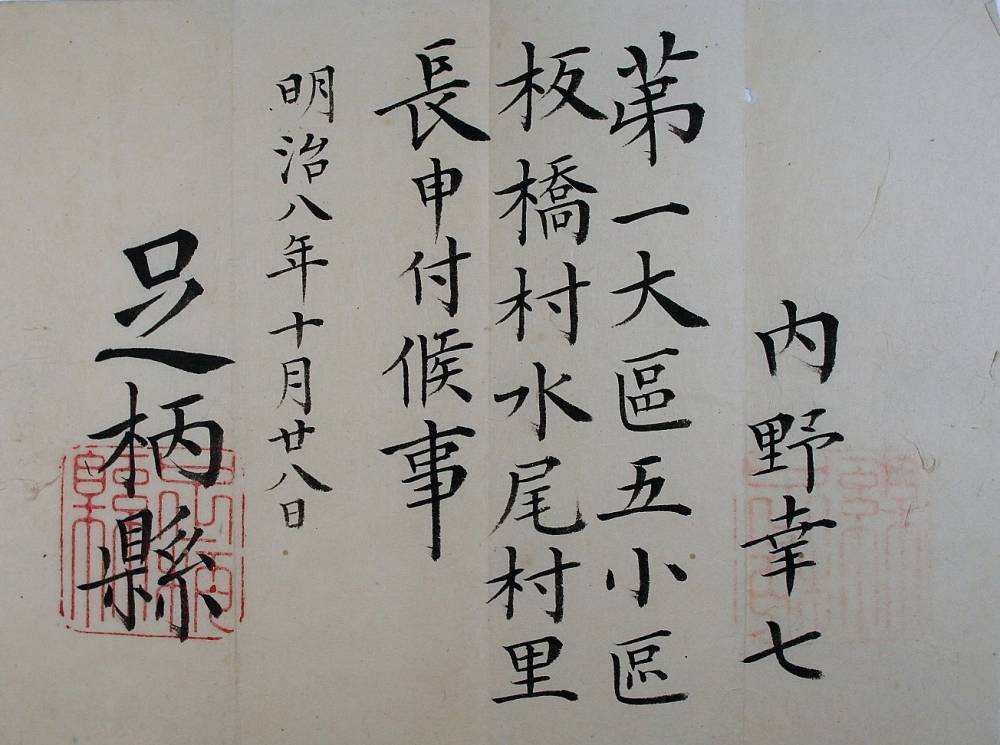 内野幸七
第一大區五小區
板橋村水尾村里
長申付候事
明治八年十月廿八日
足柄縣